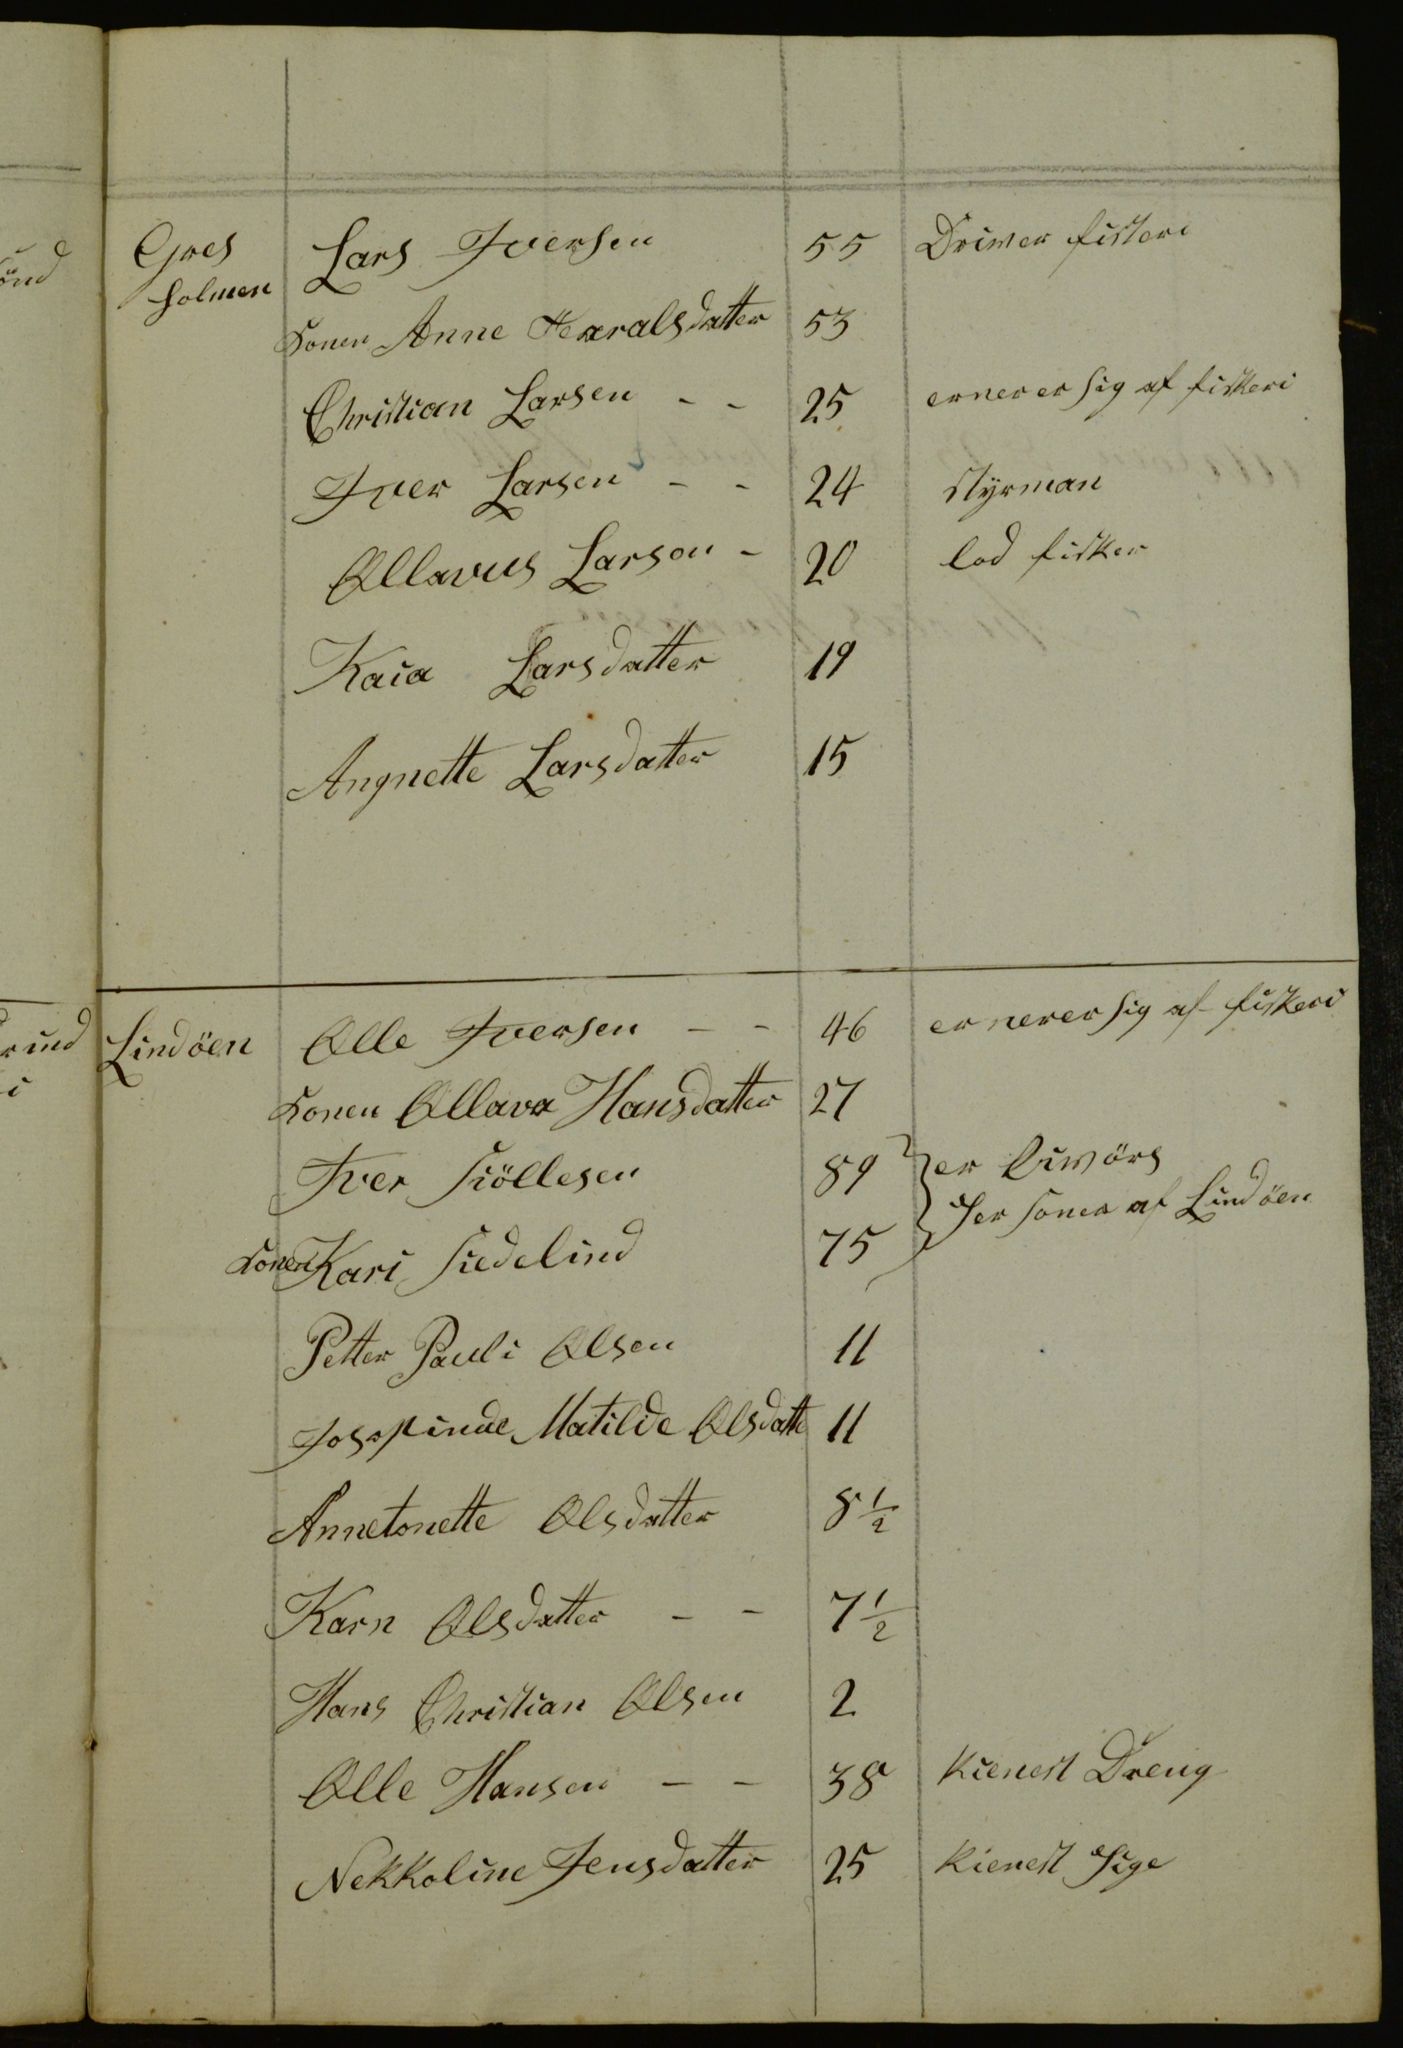 Gres Lars Iversen 55 Driver fiskeri
holmen
konen Anne Haraldsdatter 53
Christian Larsen - - 25 ernerer sig af fiskeri
Iver Larsen - - 24 styrman
Ollavus Larsen - 20 lod fisker
Kaia Larsdatter 19
Angnette Larsdatter 15
Lindöen Olle Iversen - - 46 ernerer sig af fiskeri
konen Ollava Hansdatter 27
Iver Siöllesen 89 er
75 af Lindöen
konen Kari
Petter Pauli Olsen 11
Matilde Olsdatte 11
Annetonette Olsdatter 8 1/2
Karn Olsdatter - - 7 1/2
Hans Christian Olsen 2
Olle Hansen - - 38 kienest Dreng
Nekkoline Jensdatter 25 kienest Pige